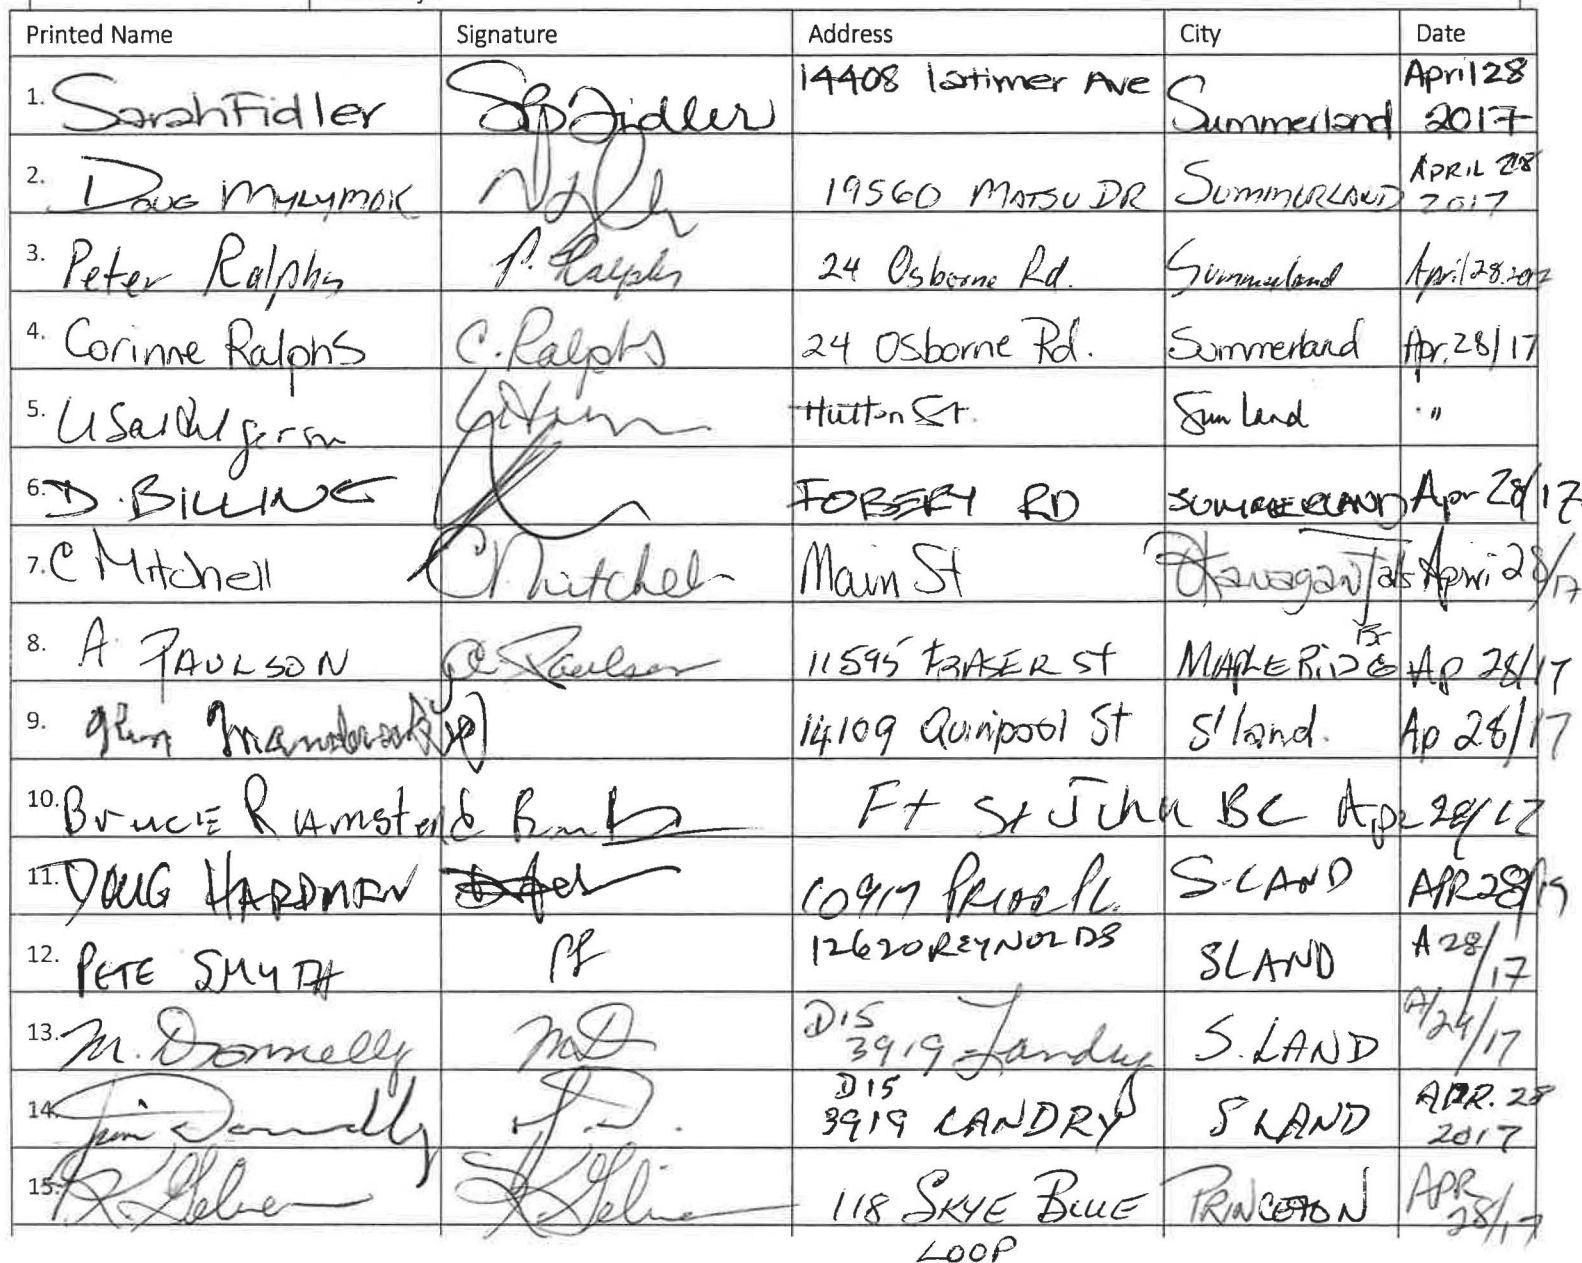 Printed Name Signature Address City Date
1. Sarah Fidler S Fidler 14408 Latimer Ave Summerland April 28 2017
2. Doug Mylymok 19560 Matsu DR Summerland April 28 2017
3. Peter Ralphs P. Ralphs 24 Osborne Rd. Summerland April 28.2017
4. Corinne Ralphs C. Ralphs 24 Osborne Rd. Summerland Apr. 28/17
5. Hutton St. Sum land "
6. D. BILLING FOBERY RD SUMMERLAND Apr 28/17
7. C Mitchell C Mitchell Main St Okanagan Falls April 28/17
8. A. PAULSON A. Paulson 11595 FRASER St MAPLE RIDGE Ap 28/17
9. 14109 Quinpool St S'land. Ap 28/17
10. Bruce Ramstead Ft St John BC Apr 28/17
11. DOUG HARDMAN 10917 PRIOR PL. S.LAND APR 28/17
12. PETE SMYTH PS 12620 REYNOLDS SLAND A 28/17
13. M. Donnelly MD D15 3919 Landry S. LAND A/24/17
14. Jim Donnelly J.D. D15 3919 LANDRY S LAND APR. 28 2017
15. K. 118 SKYE BLUE LOOP PRINCETON APR 28/17